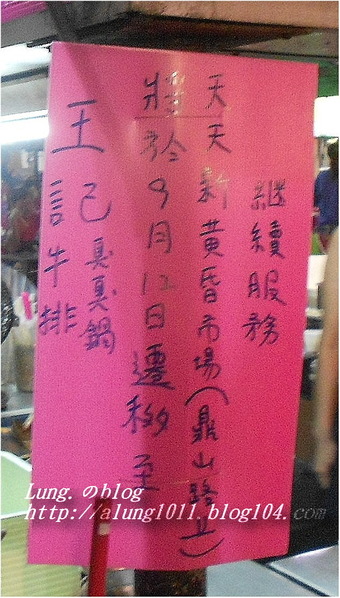 王記
牛排
臭臭鍋
將於9月12日遷移至
天天新黃昏市場(鼎山路上)
繼續服務
Lung. のblog
http://alung1011.blog104.com